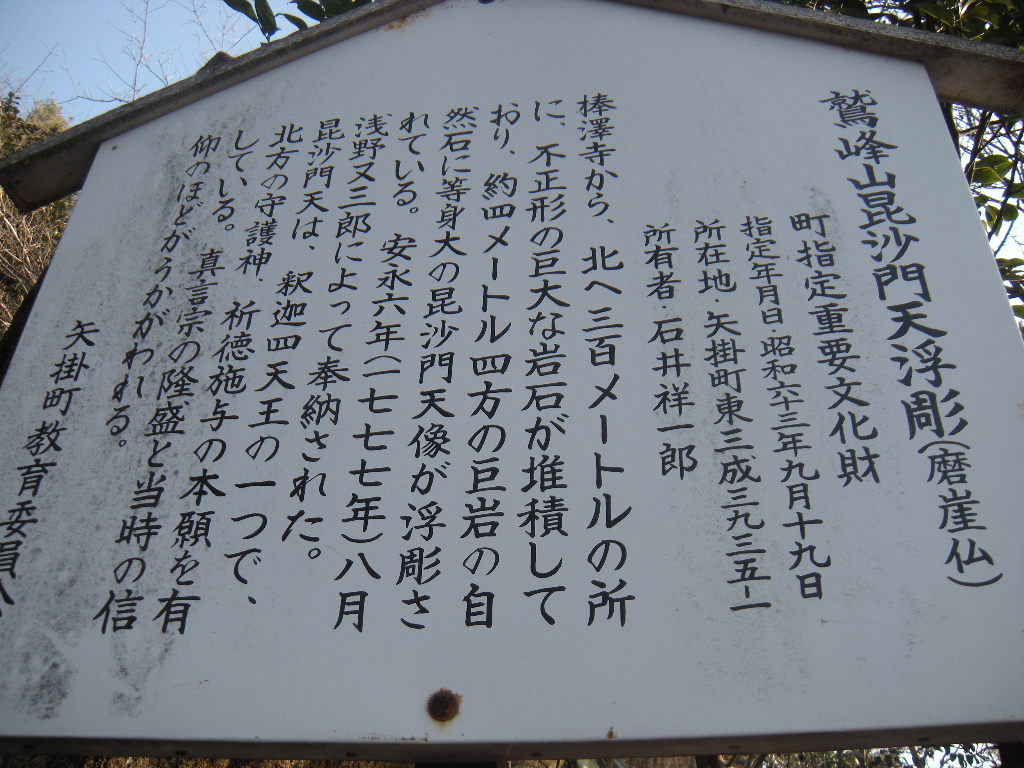 鷲峰山毘沙門天浮彫(磨崖仏)
町指定重要文化財
指定年月日・昭和六十三年九月十九日
所在地・矢掛町東三成三九三五-一
所有者・石井祥一郎
棒澤寺から、北へ三百メートルの所
に、不正形の巨大な岩石が堆積して
おり、約四メートル四方の巨岩の自
然石に等身大の毘沙門天像が浮彫さ
れている。安永六年(一七七七年)八月
浅野又三郎によって奉納された。
毘沙門天は、釈迦四天王の一つで、
北方の守護神・祈徳施与の本願を有
している。真言宗の隆盛と当時の信
仰のほどがうかがわれる。
矢掛町教育委員